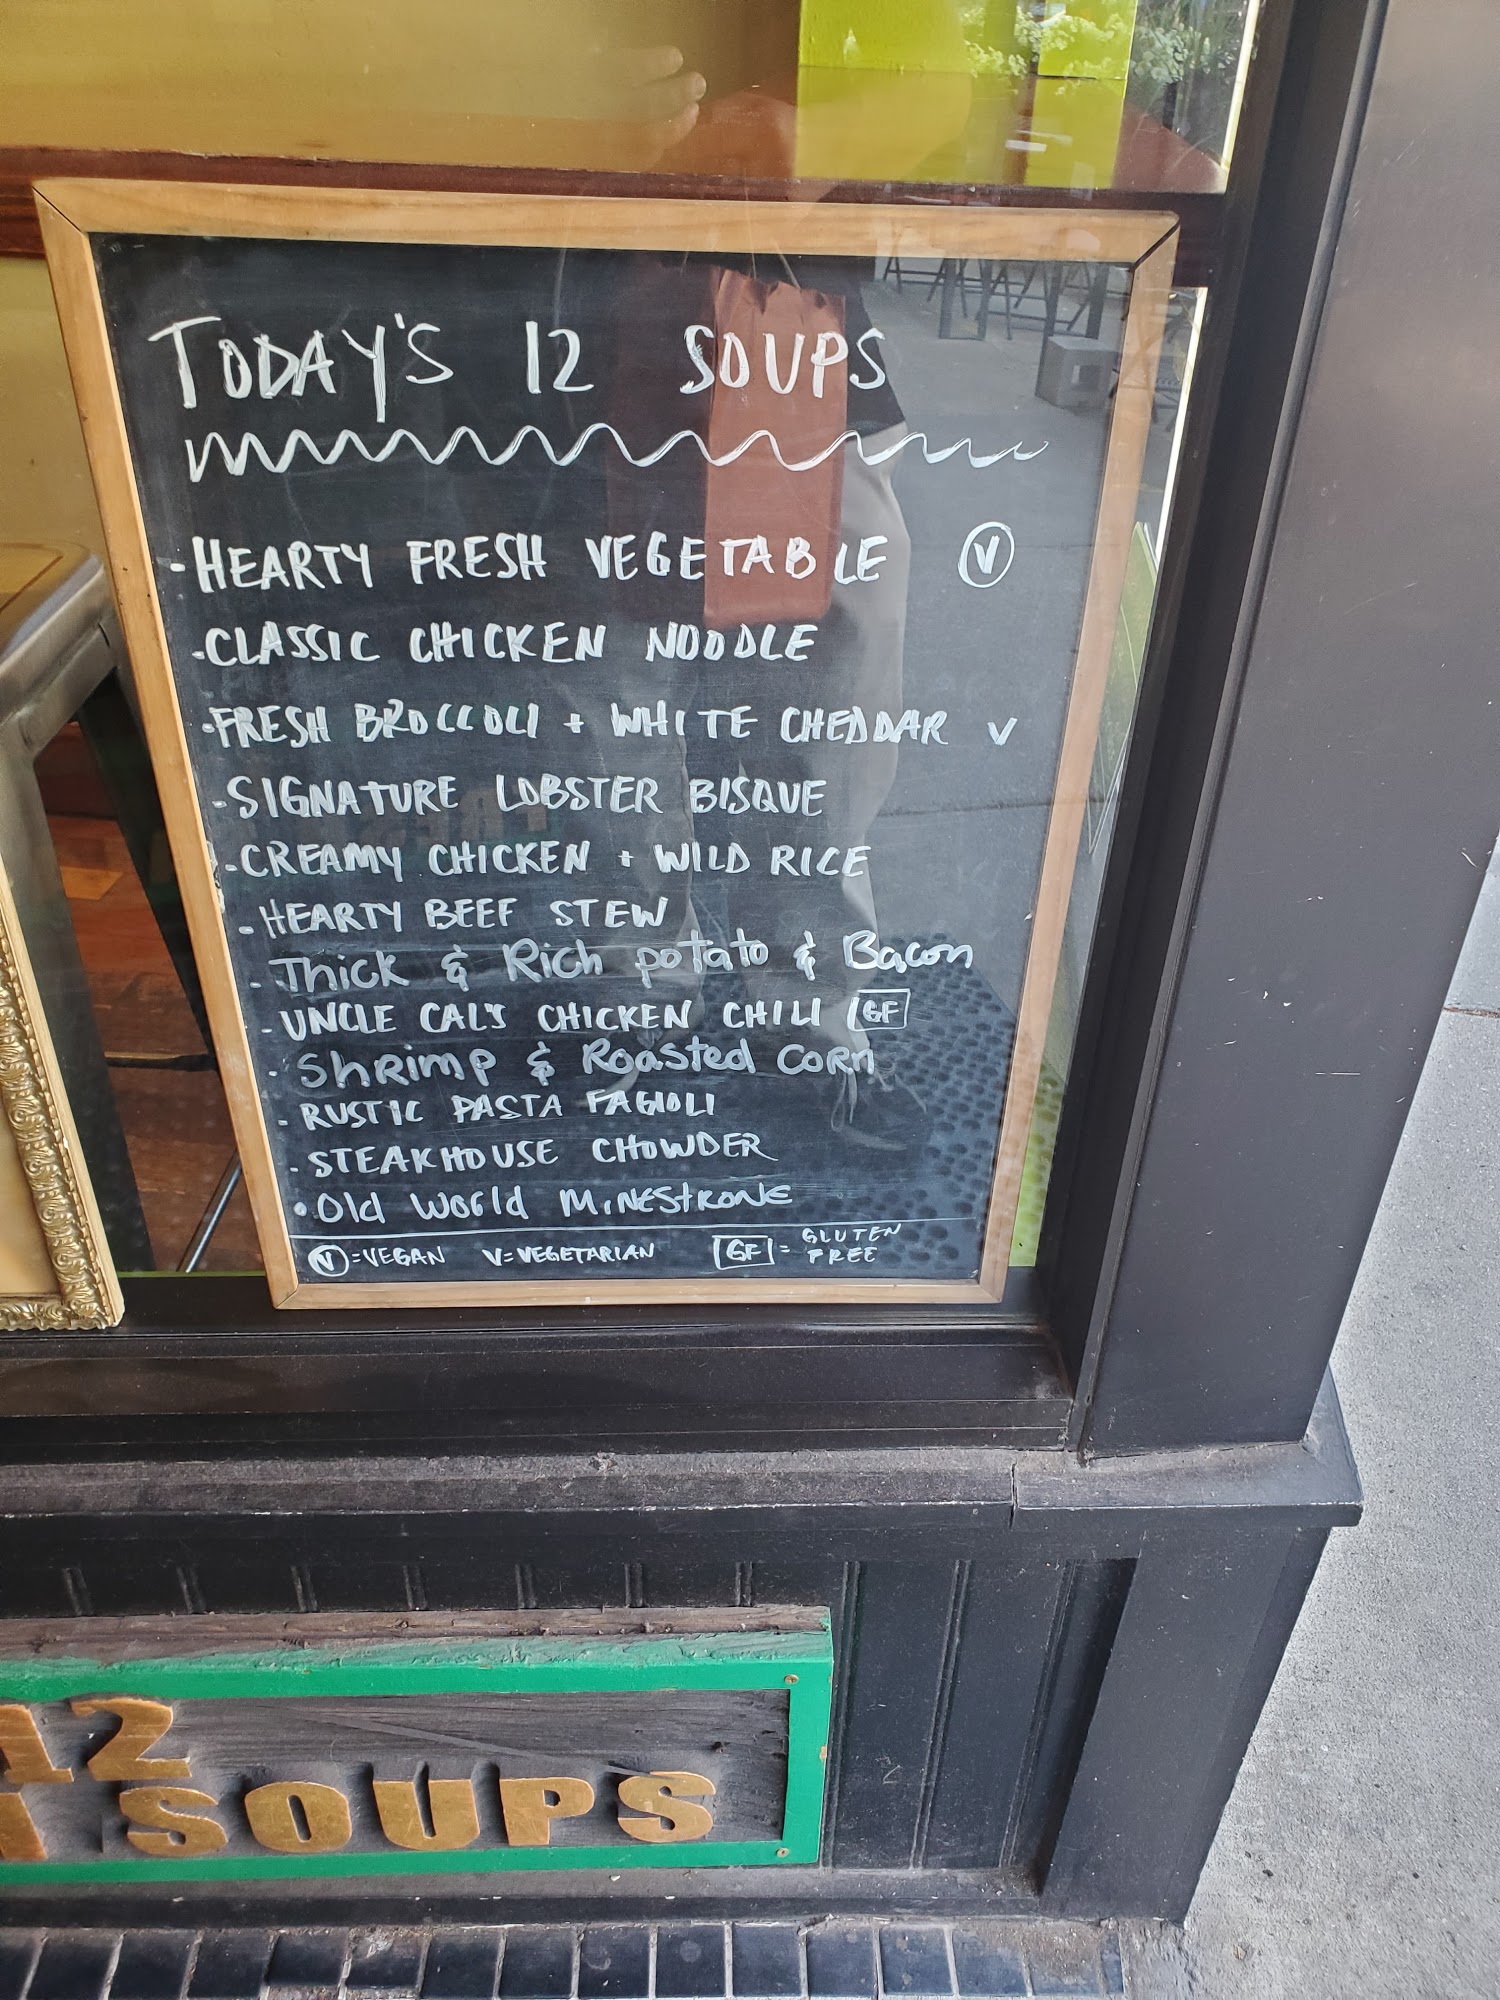 TODAY'S 12 SOUPS
- HEARTY FRESH VEGETABLE Ⓥ
- CLASSIC CHICKEN NOODLE
- FRESH BROCCOLI + WHITE CHEDDAR V
- SIGNATURE LOBSTER BISQUE
- CREAMY CHICKEN + WILD RICE
- HEARTY BEEF STEW
- Thick & Rich potato & Bacon
- UNCLE CAL'S CHICKEN CHILI GF
- Shrimp & Roasted Corn
- RUSTIC PASTA FAGIOLI
- STEAKHOUSE CHOWDER
• Old World MiNEStRONE
Ⓥ = VEGAN V = VEGETARIAN GF = GLUTEN FREE
12
SOUPS